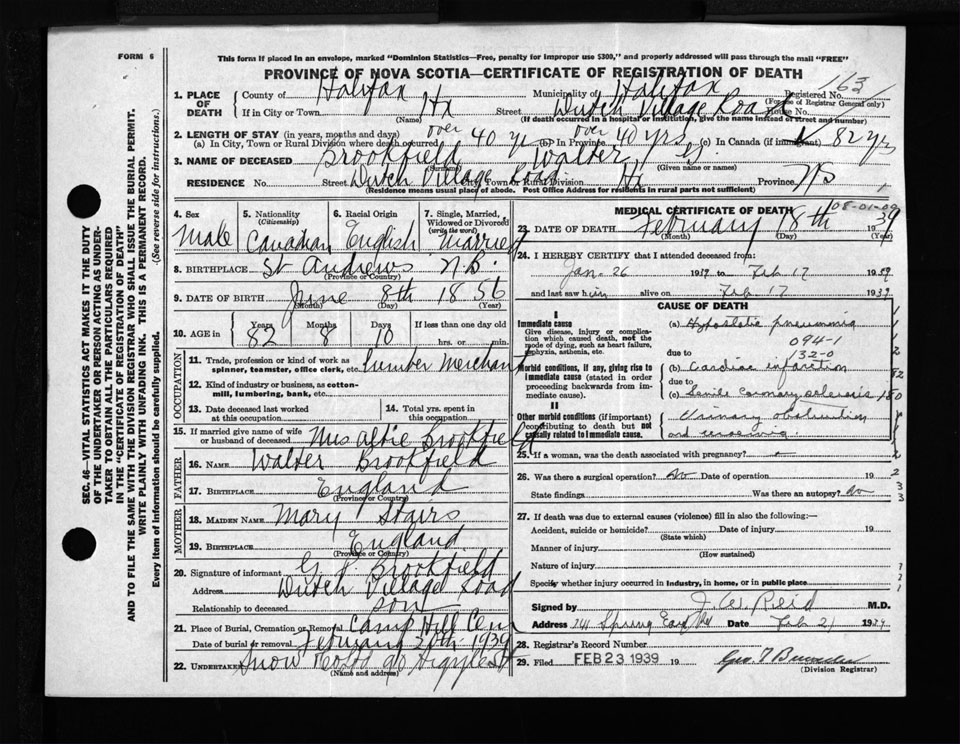 FORM 6
This form if placed in an envelope, marked "Dominion Statistics—Free, penalty for improper use $300," and properly addressed will pass through the mail "FREE"
PROVINCE OF NOVA SCOTIA—CERTIFICATE OF REGISTRATION OF DEATH
163
1. PLACE OF DEATH
County of Halifax Municipality of Halifax Registered No.
(For use of Registrar General only)
If in City or Town Hx Street Dutch Village Road House No.
(Name) (If death occurred in a hospital or institution, give the name instead of street and number)
2. LENGTH OF STAY (in years, months and days)
(a) In City, Town or Rural Division where death occurred over 40 yr (b) In Province over 40 yrs (c) In Canada (if immigrant) 82 yrs
3. NAME OF DECEASED Brookfield Walter G.
(Surname) (Given name or names)
RESIDENCE No. Street Dutch Village Road City, Town or Rural Division Hx Province NS
(Residence means usual place of abode. Post Office Address for residents in rural parts not sufficient)
4. Sex
Male
5. Nationality (Citizenship)
Canadian
6. Racial Origin
English
7. Single, Married, Widowed or Divorced (write the word)
Married
8. BIRTHPLACE St Andrews N.B.
(Province or Country)
9. DATE OF BIRTH June 8th 1856
(Month) (Day) (Year)
10. AGE in Years 82 Months 8 Days 10 If less than one day old
hrs. or min.
OCCUPATION
11. Trade, profession or kind of work as spinner, teamster, office clerk, etc. Lumber Merchant
12. Kind of industry or business, as cotton-mill, lumbering, bank, etc.
13. Date deceased last worked at this occupation
14. Total yrs. spent in this occupation
15. If married give name of wife or husband of deceased Mrs Brookfield
FATHER
16. Name Walter Brookfield
17. Birthplace England
(Province or Country)
MOTHER
18. Maiden Name Mary Stairs
19. Birthplace England
(Province or Country)
20. Signature of informant Brookfield
Address Dutch Village Road
Relationship to deceased son
21. Place of Burial, Cremation or Removal Camp Hill Cem
Date of burial or removal February 20th 1939
22. UNDERTAKER Snow & Co 90 Argyle St
(Name and address)
MEDICAL CERTIFICATE OF DEATH
08-01-09
23. DATE OF DEATH February 18th 1939
(Month) (Day) (Year)
24. I HEREBY CERTIFY that I attended deceased from:
Jan. 26 1939 to Feb 17 1939
and last saw him alive on Feb. 17 1939
CAUSE OF DEATH
I
Immediate cause
Give disease, injury or complication which caused death, not the mode of dying, such as heart failure, asphyxia, asthenia, etc.
(a) Hypostatic pneumonia
094-1
due to 132-0
Morbid conditions, if any, giving rise to immediate cause (stated in order proceeding backwards from immediate cause).
(b) Cardiac infarction
due to
(c) Senile Coronary sclerosis
II
Other morbid conditions (if important) contributing to death but not causally related to immediate cause.
Urinary obstruction
25. If a woman, was the death associated with pregnancy?
26. Was there a surgical operation? No Date of operation 19
State findings Was there an autopsy? No
27. If death was due to external causes (violence) fill in also the following:—
Accident, suicide or homicide? Date of injury 19
(State which)
Manner of injury
(How sustained)
Nature of injury
Specify whether injury occurred in industry, in home, or in public place
Signed by J. W. Reid M.D.
Address Spring Garden Rd Date Feb 21 1939
28. Registrar's Record Number
29. Filed FEB 23 1939 19
(Division Registrar)
SEC. 46—VITAL STATISTICS ACT MAKES IT THE DUTY
OF THE UNDERTAKER OR PERSON ACTING AS UNDER-
TAKER TO OBTAIN ALL THE PARTICULARS REQUIRED
IN THE "CERTIFICATE OF REGISTRATION OF DEATH"
AND TO FILE THE SAME WITH THE DIVISION REGISTRAR WHO SHALL ISSUE THE BURIAL PERMIT.
WRITE PLAINLY WITH UNFADING INK. THIS IS A PERMANENT RECORD.
Every item of information should be carefully supplied. (See reverse side for instructions.)